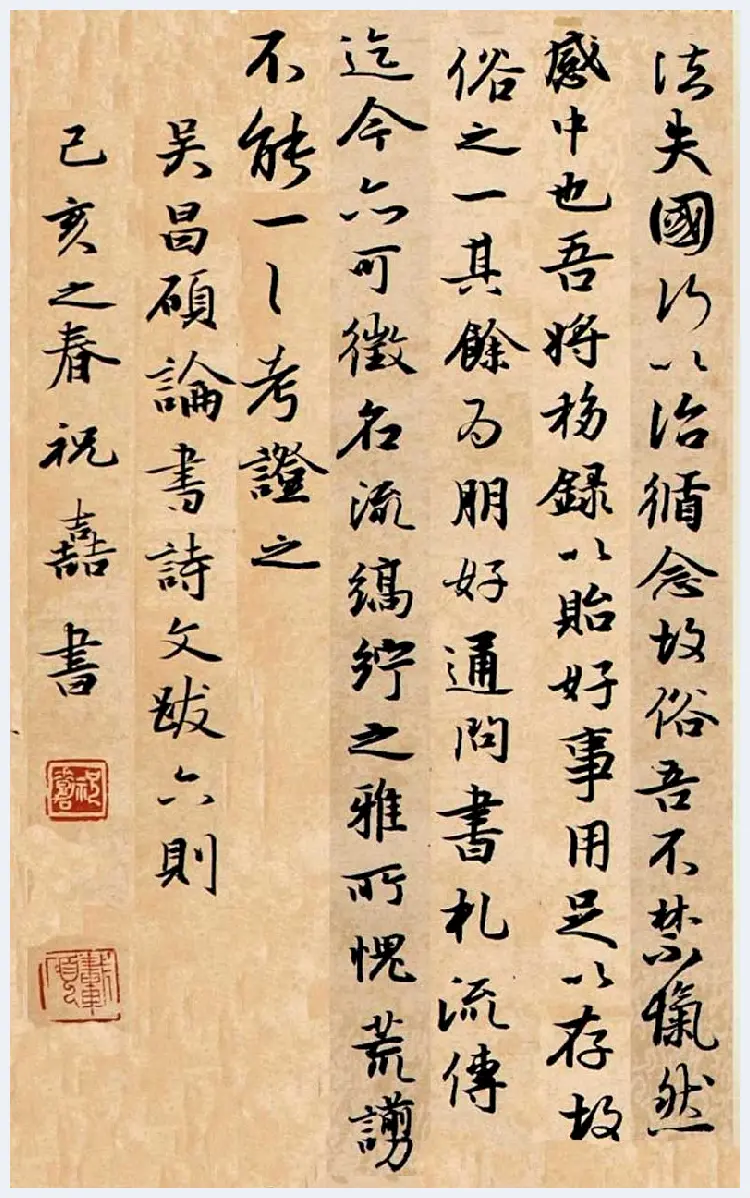 法失國何以治循念故俗吾不禁愾然
感中也吾將移錄以貽好事用足以存故
俗之一其餘為朋好通問書札流傳
迄今亦可徵名流縞紵之雅所愧荒謭
不能一一考證之
吳昌碩論書詩文跋六則
己亥之春祝嘉書
祝嘉